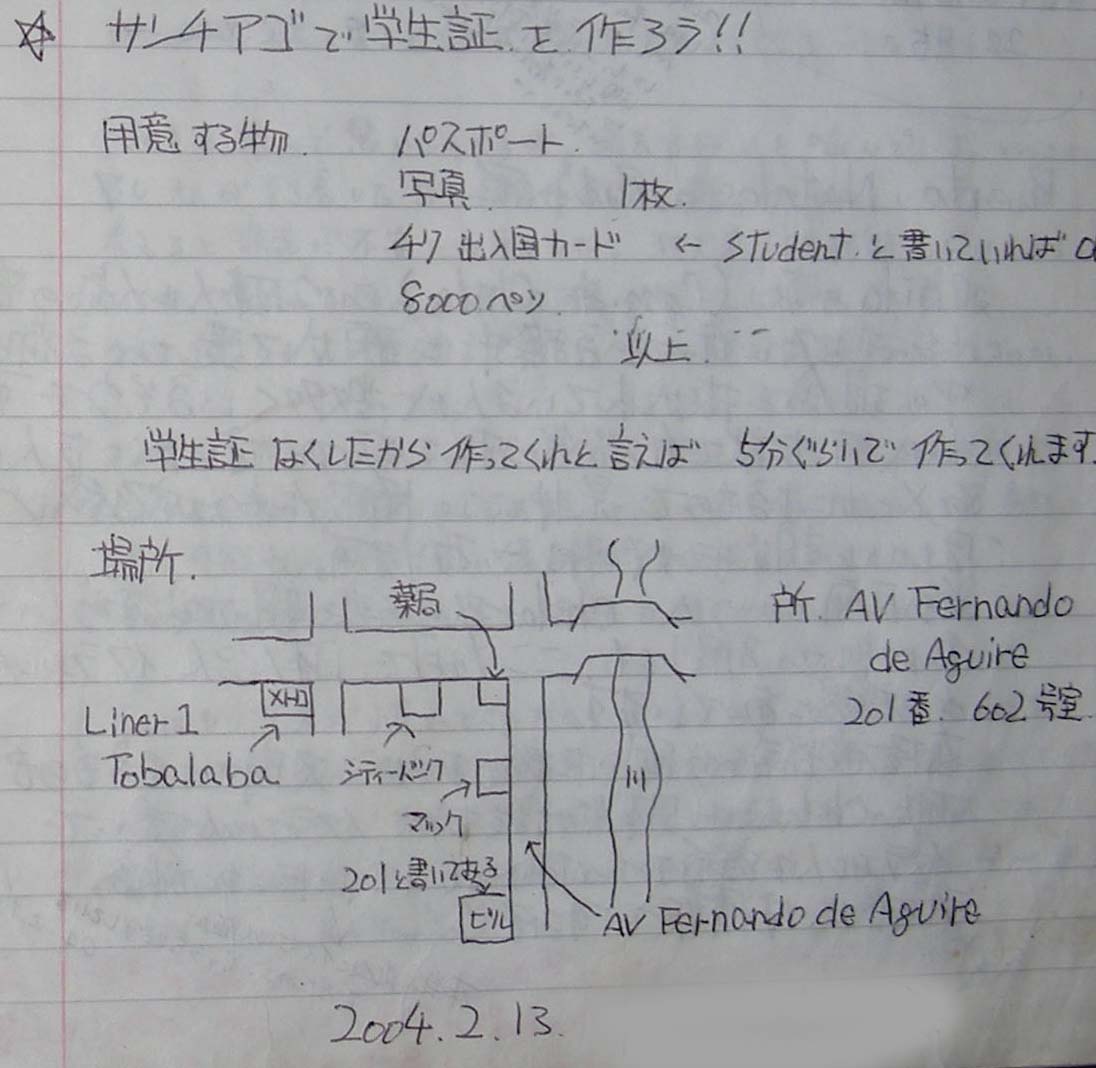 ☆ サンチアゴで学生証を作ろう!!
用意する物. パスポート.
写真. 1枚.
チリ出入国カード ← Student.と書いていれば
8000ペソ.
以上.
学生証なくしたから作ってくれと言えば 5分ぐらいで作ってくれます.
場所.
薬局
所. AV Fernando
de Aguire
201番. 602号室.
Liner 1
Tobalaba
シティーバンク
川
マック
201と書いてある
ビル
AV Fernando de Aguire
2004.2.13.